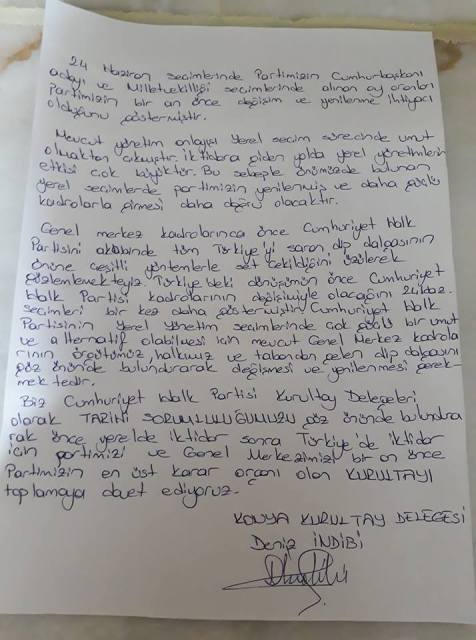 24 Haziran seçimlerinde Partimizin Cumhurbaşkanı
adayı ve Milletvekilliği seçimlerinde alınan oy oranları
Partimizin bir an önce değişim ve yenilenme ihtiyacı
olduğunu göstermiştir.
Mevcut yönetim anlayışı yerel seçim sürecinde umut
olmaktan çıkmıştır. İktidara giden yolda yerel yönetimlerin
etkisi çok büyüktür. Bu sebeple önümüzde bulunan
yerel seçimlerde partimizin yenilenmiş ve daha güçlü
kadrolarla girmesi daha doğru olacaktır.
Genel merkez kadrolarınca önce Cumhuriyet Halk
Partisini akabinde tüm Türkiye'yi saran dip dalgasının
önüne çeşitli yöntemlerle set çekildiğini üzülerek
gözlemlemekteyiz. Türkiye'deki dönüşümün önce Cumhuriyet
Halk Partisi kadrolarının değişimiyle olacağını 24 haz.
seçimleri bir kez daha göstermiştir. Cumhuriyet Halk
Partisinin yerel yönetim seçimlerinde çok güçlü bir umut
ve alternatif olabilmesi için mevcut Genel Merkez kadrola
rının örgütümüz, halkımız ve tabandan gelen dip dalgasını
göz önünde bulundurarak değişmesi ve yenilenmesi gerek-
mektedir.
Biz Cumhuriyet Halk Partisi Kurultay Delegeleri
olarak TARİHİ SORUMLULUĞUMUZU göz önünde bulundura
rak önce yerelde iktidar sonra Türkiye'de iktidar
için partimizi ve Genel Merkezimizi bir an önce
Partimizin en üst karar organı olan KURULTAYI
toplamaya davet ediyoruz.
KONYA KURULTAY DELEGESİ
Deniz İNDİBİ